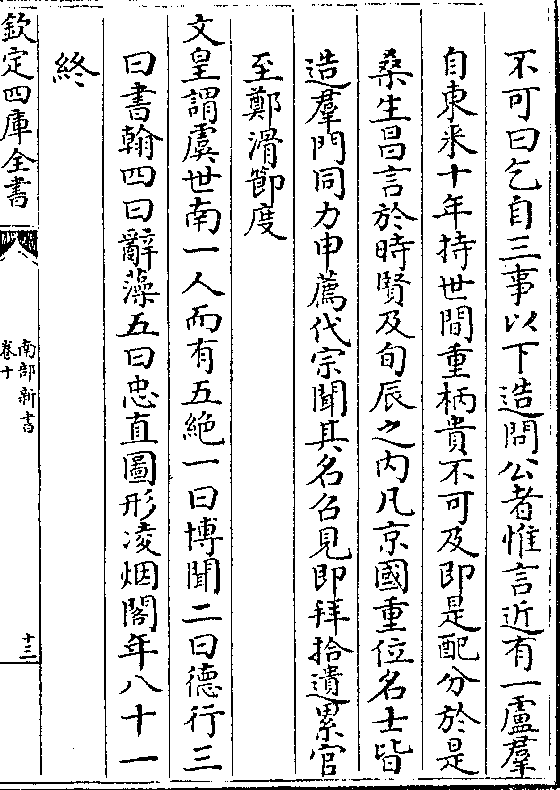 不可曰乞自三事以下造問公者惟言近有一盧羣
自東来十年持世間重柄貴不可及即是配分於是
桑生昌言於時賢及旬辰之内凡京國重位名士皆
造羣門同力申薦代宗聞其名召見即拜拾遺累官
至鄭滑節度
文皇謂虞世南一人而有五絶一曰博聞二曰德行三
曰書翰四曰辭藻五曰忠直圖形凌烟閣年八十一
終
欽定四庫全書
南部新書
卷十
十三